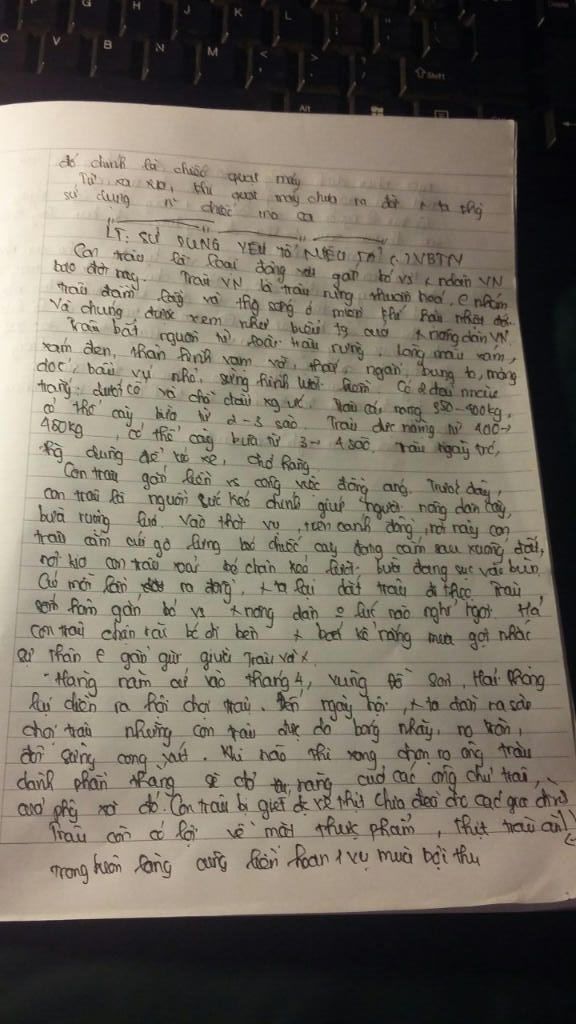 đó chính là chiếc quạt máy
Từ xa xưa, khi quạt máy chưa ra đời, ta thg
sử dụng n~ chiếc mo ca
LT: SỬ DỤNG YẾU TỐ MIÊU TẢ () VBTM
Con trâu là loài động vật gắn bó vs ndân VN
bao đời nay. Trâu VN là trâu rừng thuần hoá,
trâu đầm lầy và thg sống ở miền khí hậu nhiệt đới.
Và chúng được xem như của nông dân VN
Trâu bắt nguồn từ loài trâu rừng, lông màu xám,
xám đen, thân hình vạm vỡ, thấp, ngắn, bụng to, mông
dốc, bầu vú nhỏ, sừng hình lưỡi liềm. Có 2 đai màu
trắng: dưới cổ và chỗ đầu xg ức. Trâu cái nặng 350-400kg,
có thể cày bừa từ 2-3 sào. Trâu đực nặng từ 400->
450kg, có thể cày bừa từ 3->4 sào. Trâu
dùng để kéo xe, chở hàng.
Con trâu gắn liền vs công việc đồng áng. Trước đây,
con trâu là nguồn sức kéo chính giúp người nông dân cày,
bừa ruộng lúa. Vào thời vụ, trên cánh đồng, nơi này con
trâu cắm cúi gò lưng kéo chiếc cày đang cắm sâu xuống đất,
nơi kia con trâu xoải bộ chân kéo lưỡi bừa đang sục vào bùn.
Cứ mỗi lần ra đồng, ta lại dắt trâu đi Trâu
luôn gắn bó vs nông dân lúc nào nghỉ ngơi.
con trâu chậm rãi bé đi bên kể nắng mưa gợi nhắc
sự thân gần gũi giữa trâu và
- Hàng năm cứ vào tháng 4, vùng Đồ Sơn, Hải Phòng
lại diễn ra hội chọi trâu. Đến ngày hội, ta dẫn ra sân
chọi trâu những con trâu đực da bóng nhẫy, no tròn,
đôi sừng cong vút. Khi nào thi xong chọn ra ông trâu
dành phần thắng sẽ do của các ông chủ trâu,
đó. Con trâu bị giết để về thịt chia đều cho các gia đình
Trâu còn có lợi về mặt thực phẩm, thịt trâu ăn
trong buôn làng cũng liên hoan 1 vụ mùa bội thu